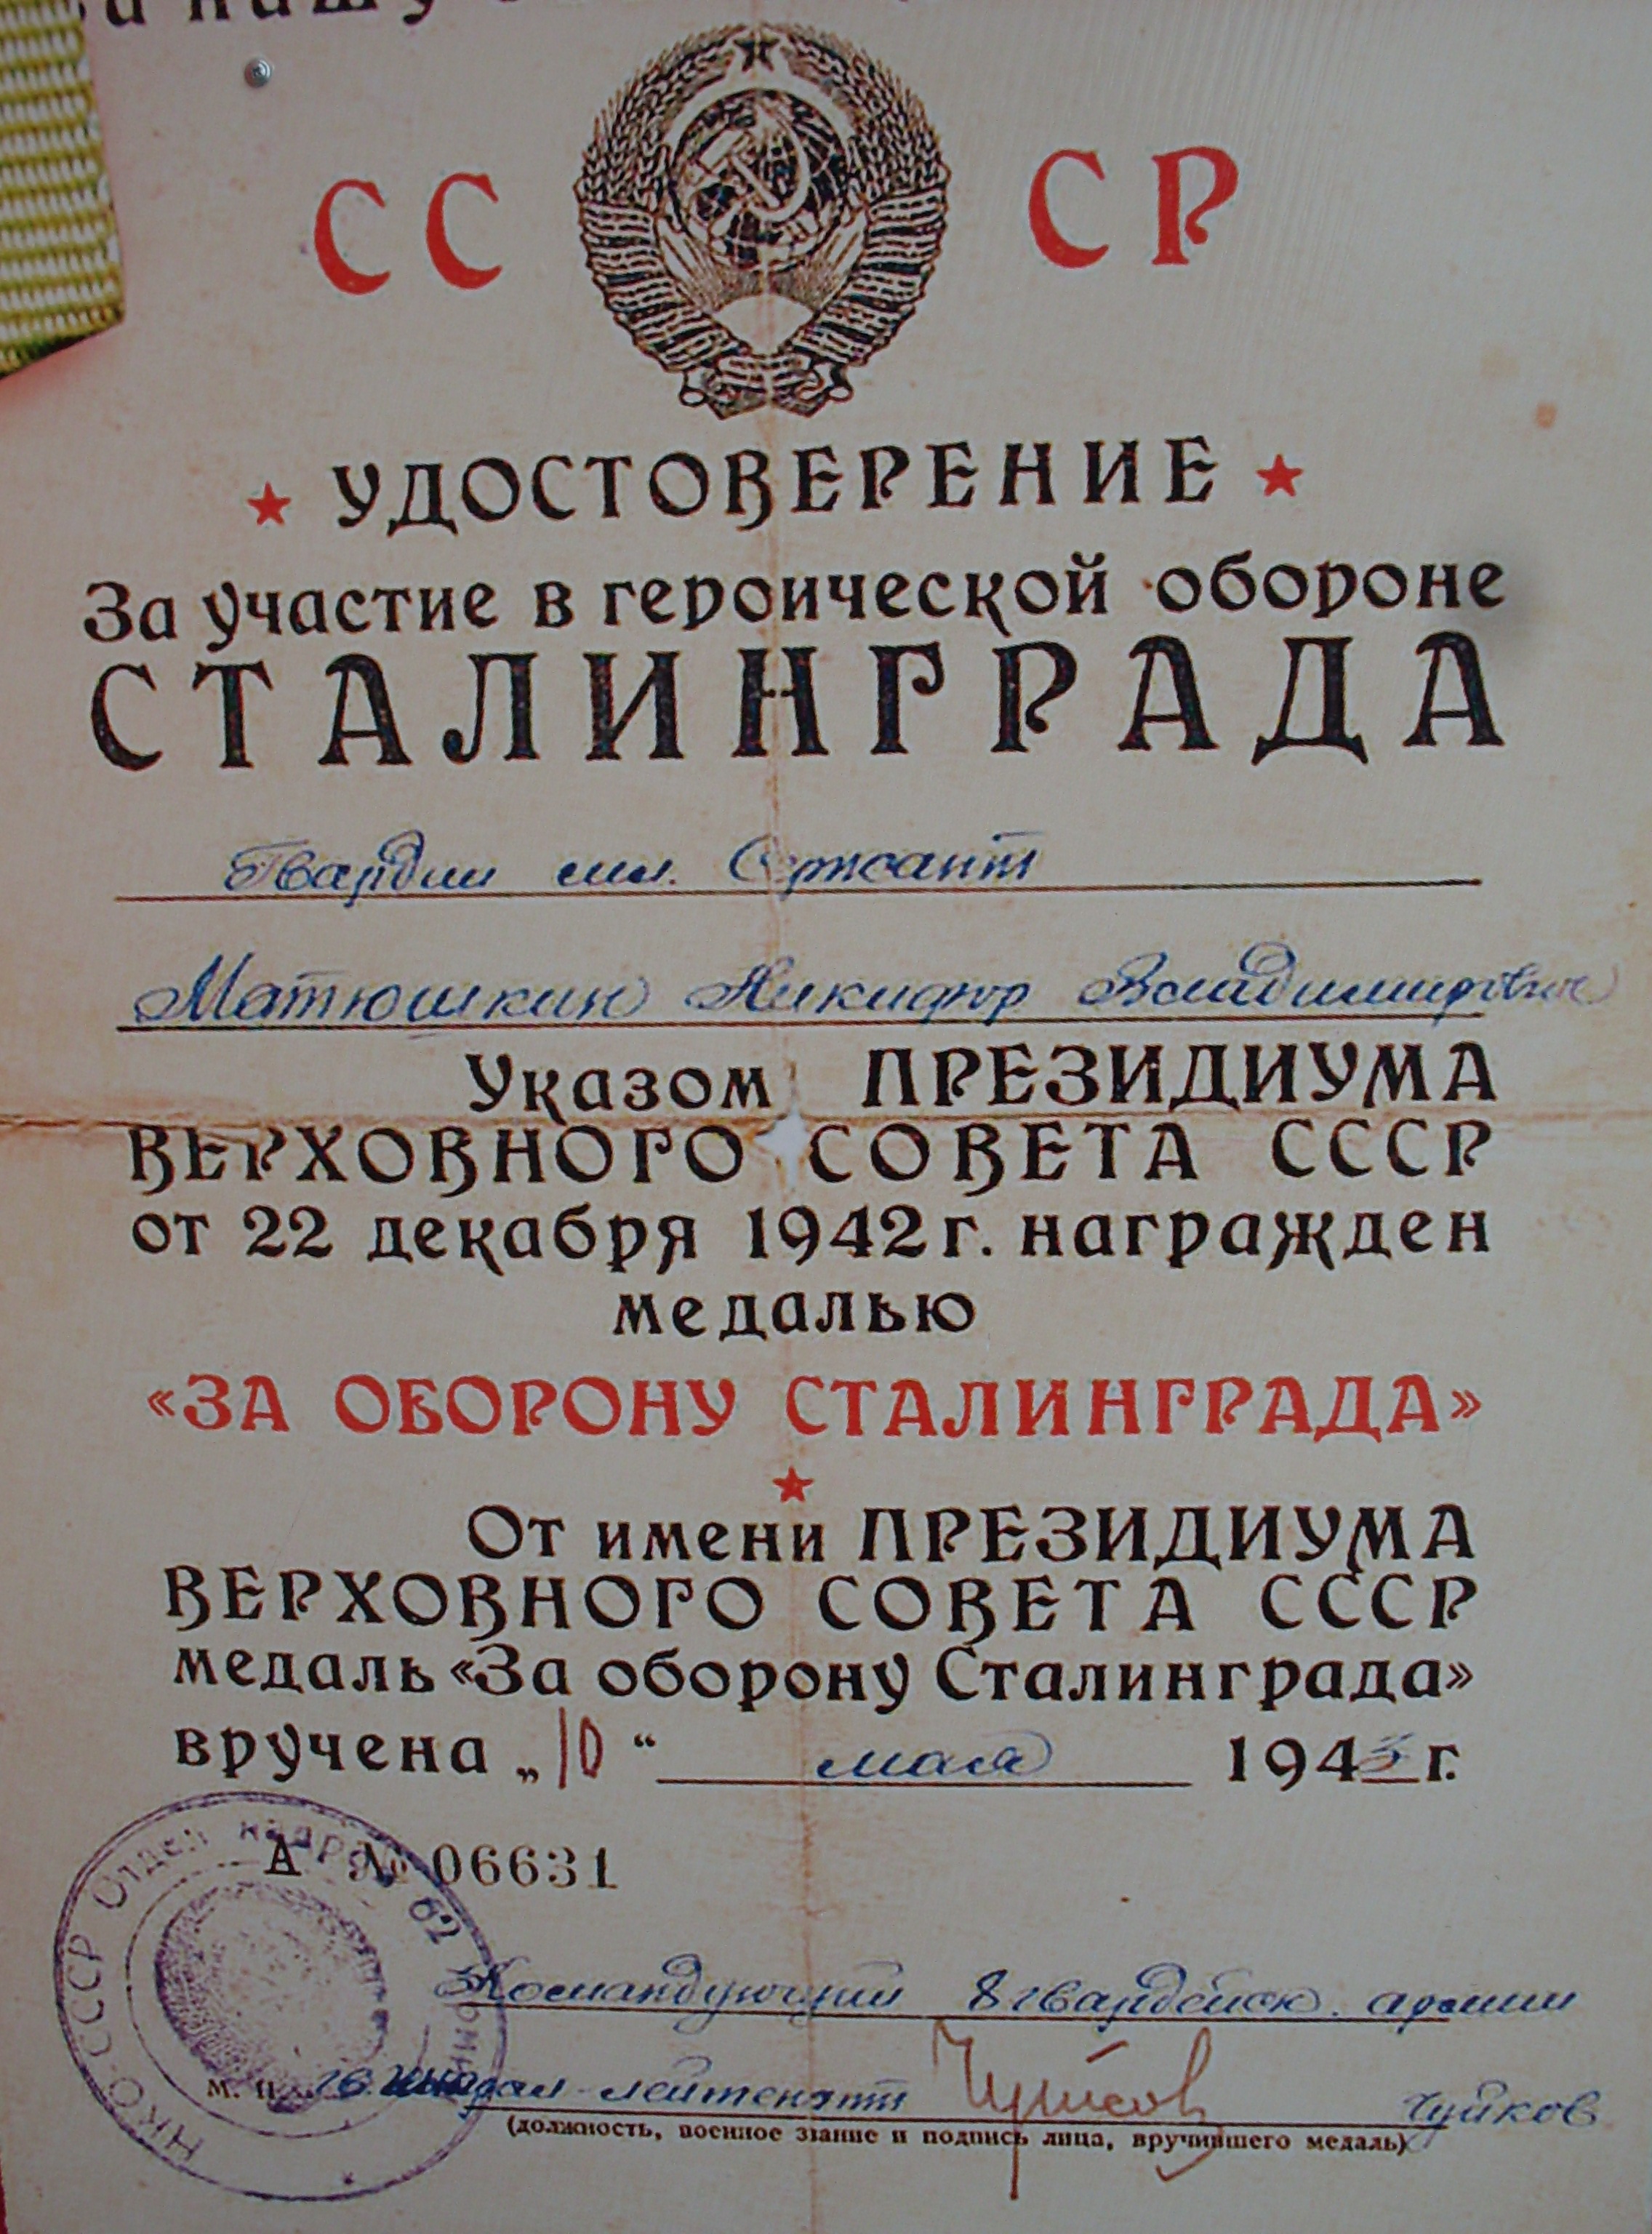 нашу
СССР
УДОСТОВЕРЕНИЕ
За участие в героической обороне
СТАЛИНГРАДА
Гвардии мл. Сержант
Матюшкин Никифор Владимирович
Указом ПРЕЗИДИУМА
ВЕРХОВНОГО СОВЕТА СССР
от 22 декабря 1942 г. награжден
медалью
«ЗА ОБОРОНУ СТАЛИНГРАДА»
От имени ПРЕЗИДИУМА
ВЕРХОВНОГО СОВЕТА СССР
медаль «За оборону Сталинграда»
вручена „10“ мая 1943 г.
А № 06631
НКО-СССР Отдел кадров 62
Командующий 8 гвардейск. армии
м. п. гв. генерал-лейтенант Чуйков Чуйков
(должность, военное звание и подпись лица, вручившего медаль)